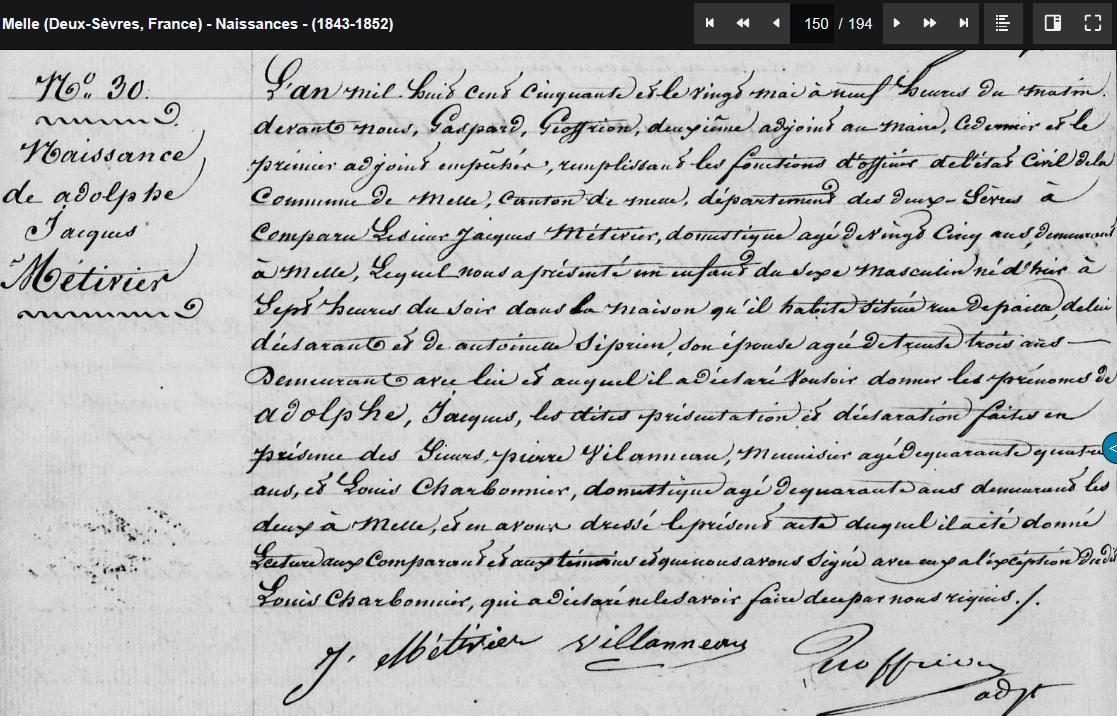 Melle (Deux-Sèvres, France) - Naissances - (1843-1852)
150 / 194
N° 30.
Naissance
de adolphe
Jacques
Métivier
L'an mil huit cent cinquante et le vingt mai à neuf heures du matin.
devant nous, Gaspard, Geoffrion, deuxième adjoint au maire, ce dernier et le
premier adjoint empêchés, remplissant les fonctions d'officier de l'état Civil de la
Commune de Melle, canton de melle, département des deux-Sèvres à
Comparu Le sieur Jacques Métivier, domestique agé de vingt Cinq ans, demeurant
à Melle, Lequel nous a présenté un enfant du sexe masculin né d'hier à
Sept heures du soir dans la maison qu'il habite située rue de paille, de lui
déclarant et de antoinette Siprien, son épouse agée de trente trois ans
Demeurant avec lui et auquel il a déclaré Vouloir donner les prénoms de
adolphe, Jacques, les dites présentation et déclaration faites en
présence des Sieurs, pierre Vilanneau, Meunisier agé de quarante quatre
ans, et Louis Charbonnier, domestique agé de quarante ans demeurant les
deux a Melle, et en avons dressé le présent acte duquel il a été donné
Lecture aux Comparant et aux témoins et que nous avons Signé avec eux a l'exception dudit
Louis Charbonnier, qui a déclaré ne le savoir faire de ce par nous requis./.
J. Métivier Villanneau Geoffrion
adjt